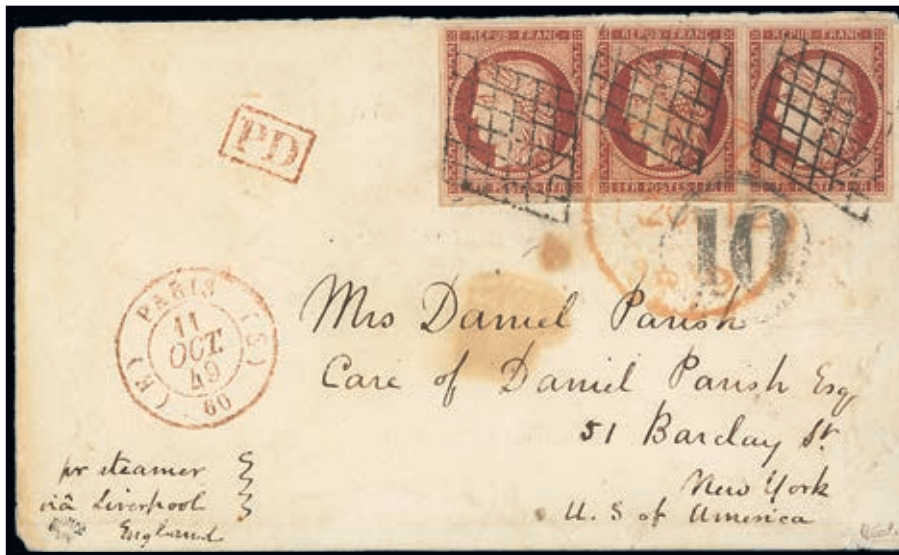 REPUB·FRANC· REPUB·FRANC· REPUB·FRANC·
1·FR·POSTES·1·FR 1·FR·POSTES·1·FR 1·FR·POSTES·1·FR
PD
10
PARIS
11
OCT.
49
(E) (S)
60
Mrs Daniel Parish
Care of Daniel Parish Esq
51 Barclay St
New York
U. S of America
pr steamer
viâ Liverpool
England